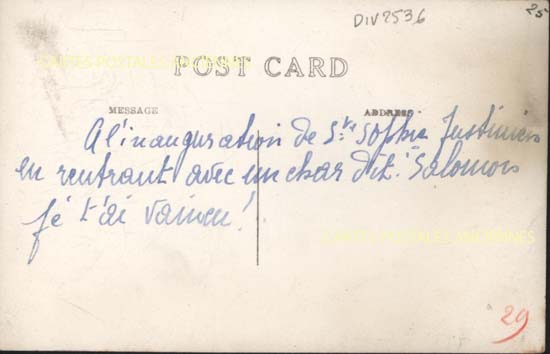 DIV2536
25
CARTES-POSTALES-ANCIENNES
POST CARD
MESSAGE
ADDRESS
A l'inauguration de Ste Sophie Justinien
en rentrant avec un char dit: Salomon
je t'ai vaincu!
CARTES-POSTALES-ANCIENNES
29